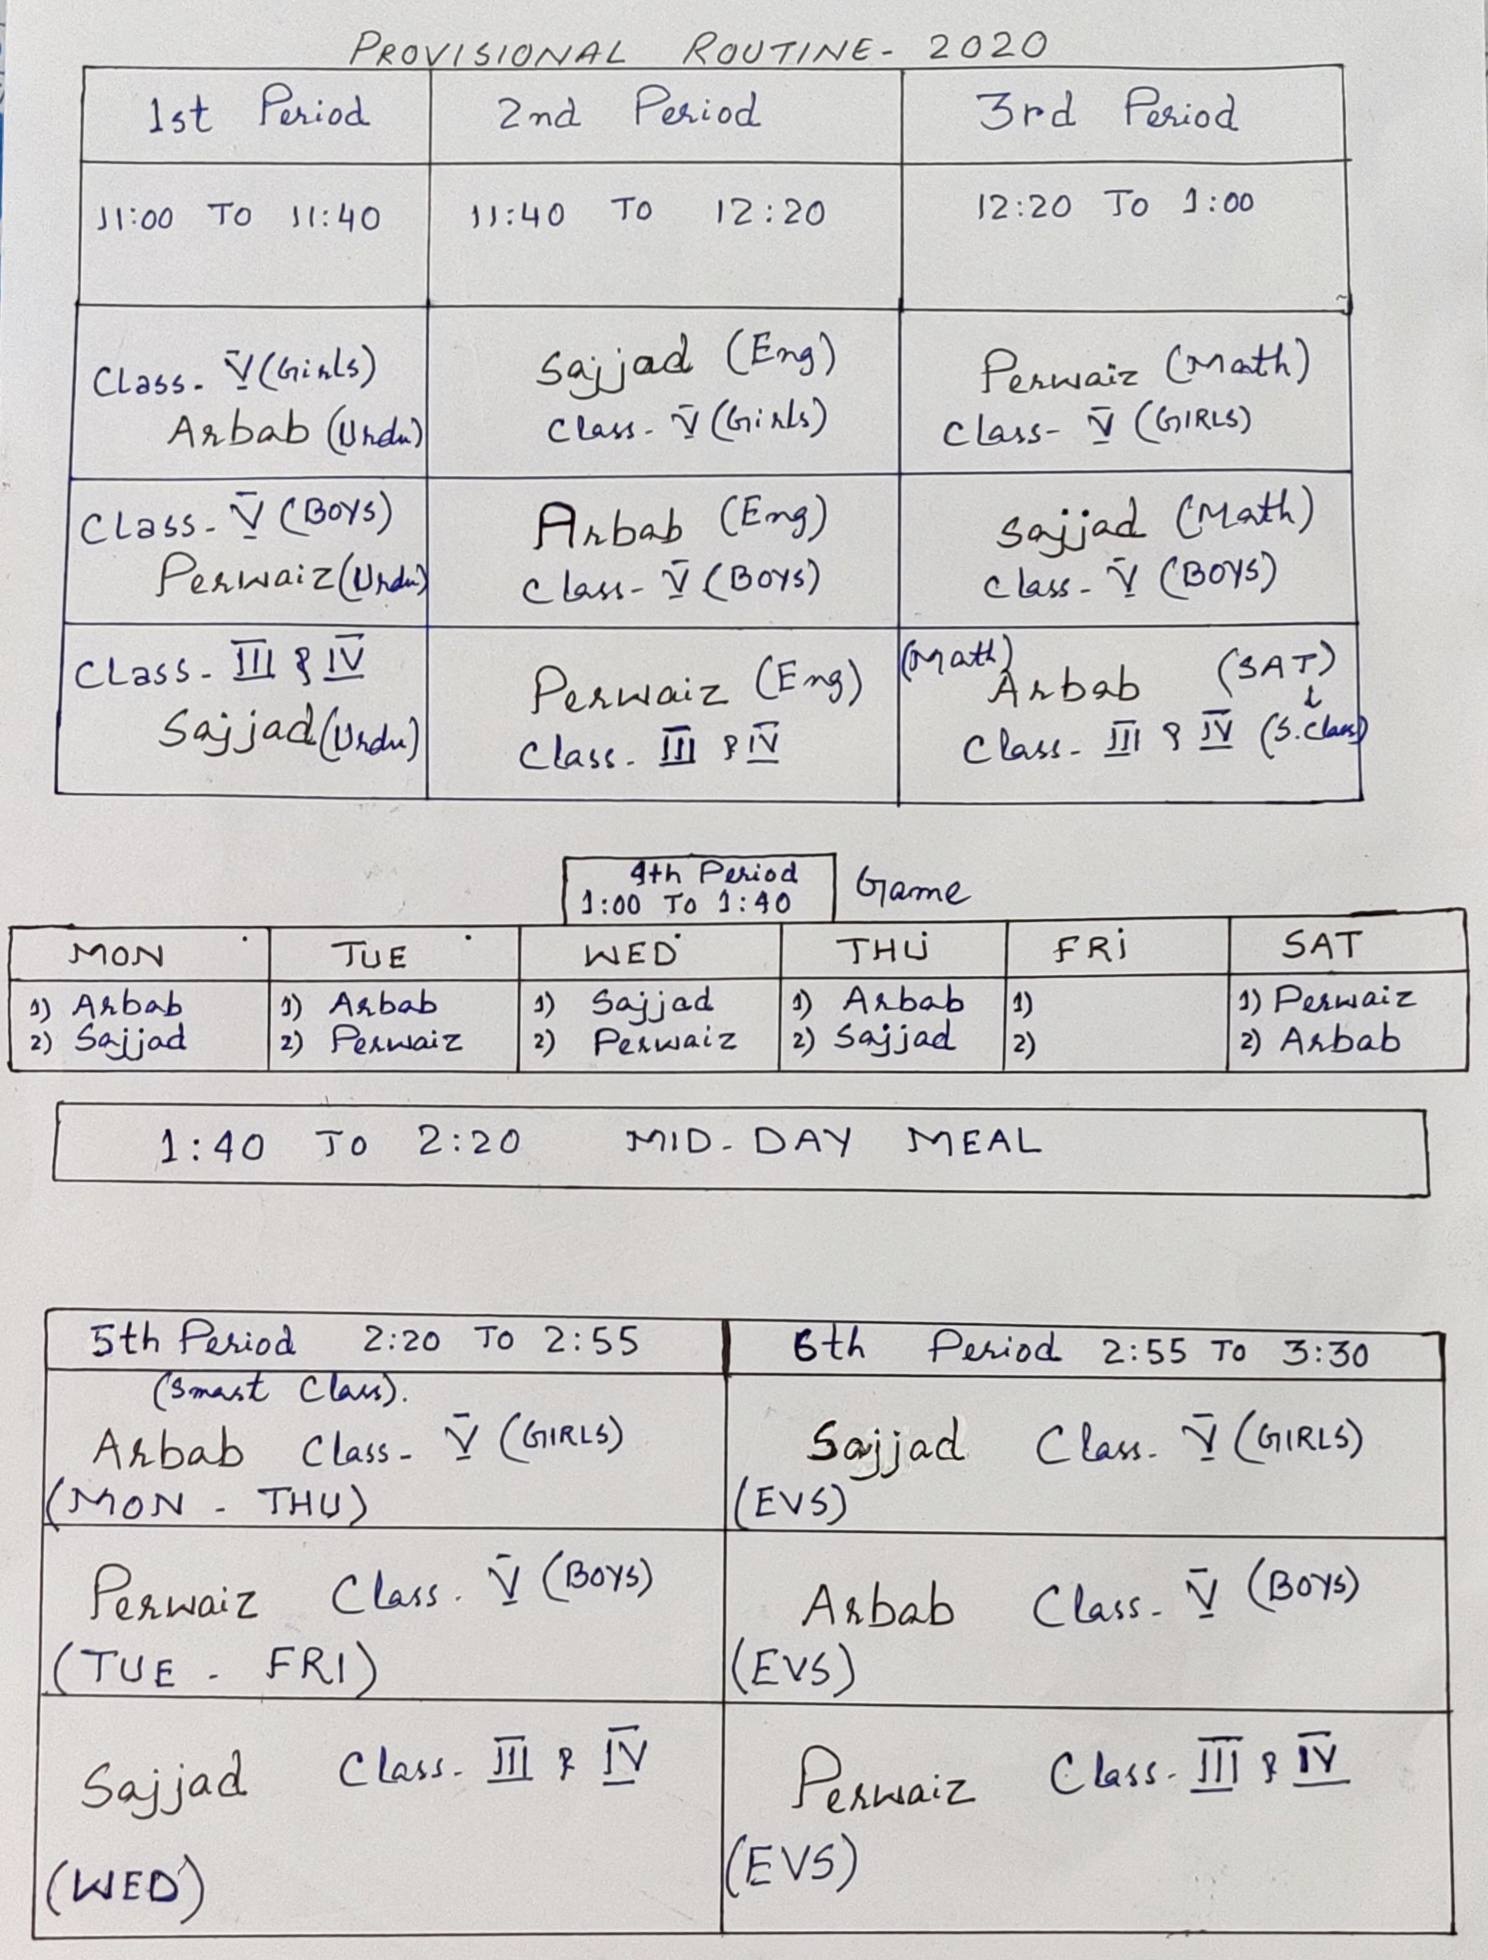 PROVISIONAL ROUTINE - 2020
1st Period 2nd Period 3rd Period
11:00 TO 11:40 11:40 TO 12:20 12:20 TO 1:00
Class - V (Girls) Sajjad (Eng) Perwaiz (Math)
Arbab (Urdu) Class - V (Girls) Class - V (GIRLS)
Class - V (BOYS) Arbab (Eng) Sajjad (Math)
Perwaiz (Urdu) Class - V (BOYS) Class - V (BOYS)
Class - III & IV Perwaiz (Eng) (Math) Arbab (SAT)
Sajjad (Urdu) Class - III & IV Class - III & IV (S. Class)
4th Period
1:00 TO 1:40 Game
MON TUE WED THU FRI SAT
1) Arbab 1) Arbab 1) Sajjad 1) Arbab 1) 1) Perwaiz
2) Sajjad 2) Perwaiz 2) Perwaiz 2) Sajjad 2) 2) Arbab
1:40 TO 2:20 MID-DAY MEAL
5th Period 2:20 TO 2:55 6th Period 2:55 TO 3:30
(Smart Class).
Arbab Class - V (GIRLS) Sajjad Class - V (GIRLS)
(MON - THU) (EVS)
Perwaiz Class - V (BOYS) Arbab Class - V (BOYS)
(TUE - FRI) (EVS)
Sajjad Class - III & IV Perwaiz Class - III & IV
(WED) (EVS)